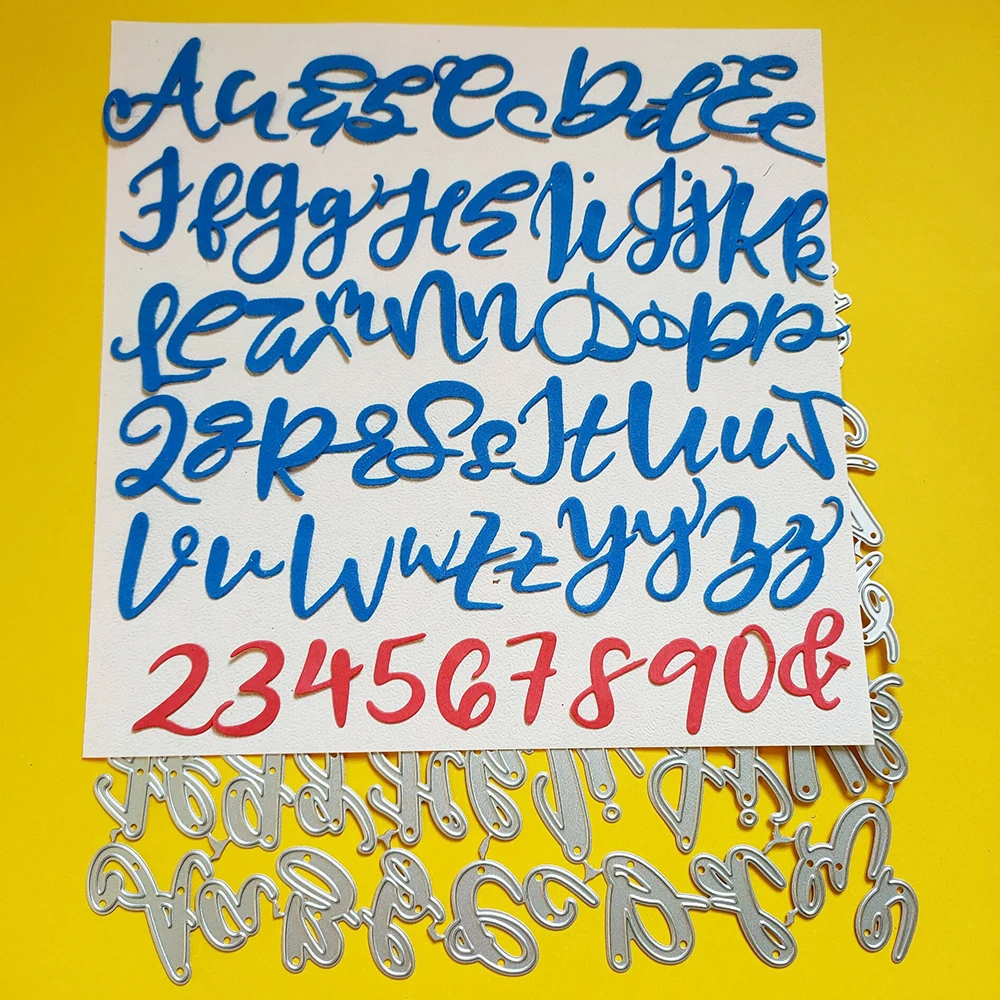 A a B b C c D d E e
F f G g H h I i J j K k
L l M m N n O o P p
Q q R r S s T t U u
V v W w X x Y y Z z
2 3 4 5 6 7 8 9 0 &